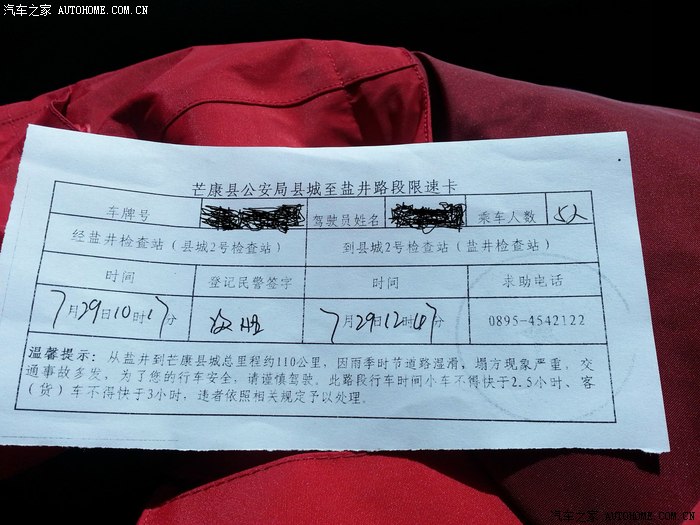 汽车之家 AUTOHOME.COM.CN
芒康县公安局县城至盐井路段限速卡
车牌号 驾驶员姓名 乘车人数 5人
经盐井检查站（县城2号检查站） 到县城2号检查站（盐井检查站）
时间 登记民警签字 时间 求助电话
7月29日10时17分 7月29日12时47分 0895-4542122
温馨提示：从盐井到芒康县城总里程约110公里，因雨季时节道路湿滑，塌方现象严重，交
通事故多发，为了您的行车安全，请谨慎驾驶。此路段行车时间小车不得快于2.5小时、客
（货）车不得快于3小时，违者依照相关规定予以处理。
汽车之家 AUTOHOME.COM.CN